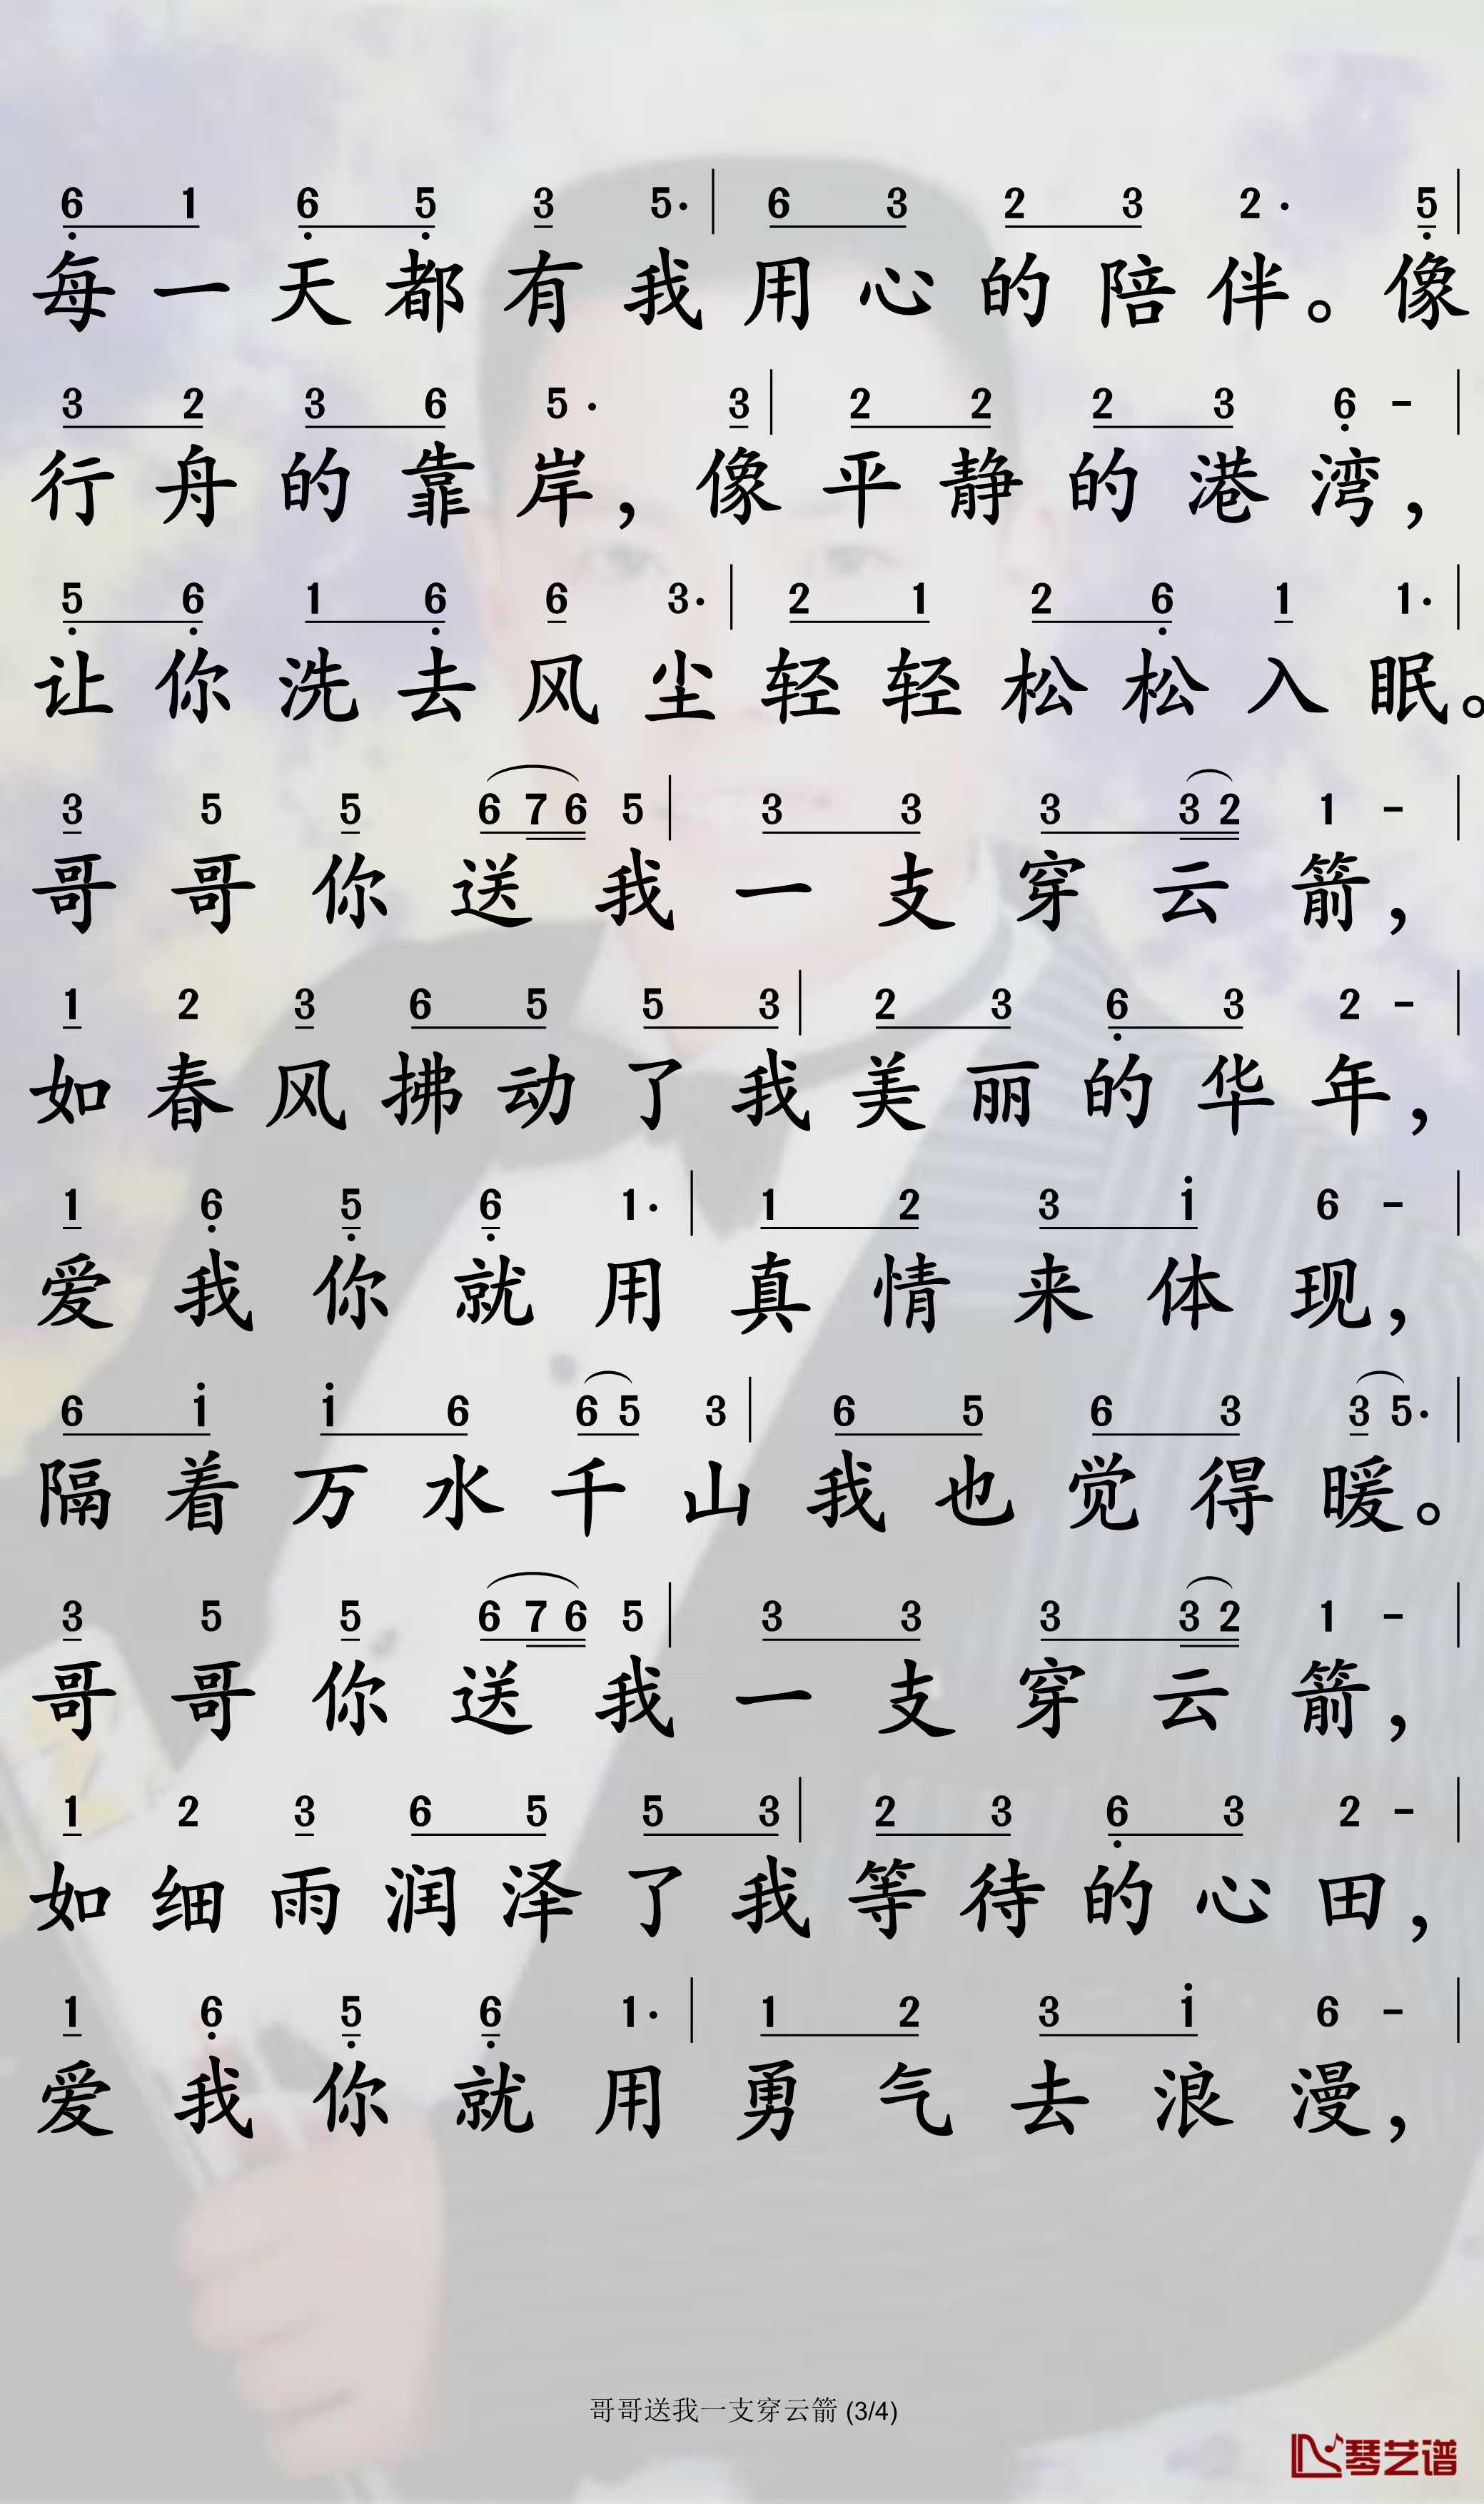 6 1 6 5 3 5· | 6 3 2 3 2· 5 |
每一天都有我用心的陪伴。像
3 2 3 6 5· 3 | 2 2 2 3 6 - |
行舟的靠岸，像平静的港湾，
5 6 1 6 6 3· | 2 1 2 6 1 1· |
让你洗去风尘轻轻松松入眠。
3 5 5 6 7 6 5 | 3 3 3 3 2 1 - |
哥哥你送我一支穿云箭，
1 2 3 6 5 5 3 | 2 3 6 3 2 - |
如春风拂动了我美丽的华年，
1 6 5 6 1· | 1 2 3 i 6 - |
爱我你就用真情来体现，
6 i i 6 6 5 3 | 6 5 6 3 3 5· |
隔着万水千山我也觉得暖。
3 5 5 6 7 6 5 | 3 3 3 3 2 1 - |
哥哥你送我一支穿云箭，
1 2 3 6 5 5 3 | 2 3 6 3 2 - |
如细雨润泽了我等待的心田，
1 6 5 6 1· | 1 2 3 i 6 - |
爱我你就用勇气去浪漫，
哥哥送我一支穿云箭 (3/4)
琴艺谱